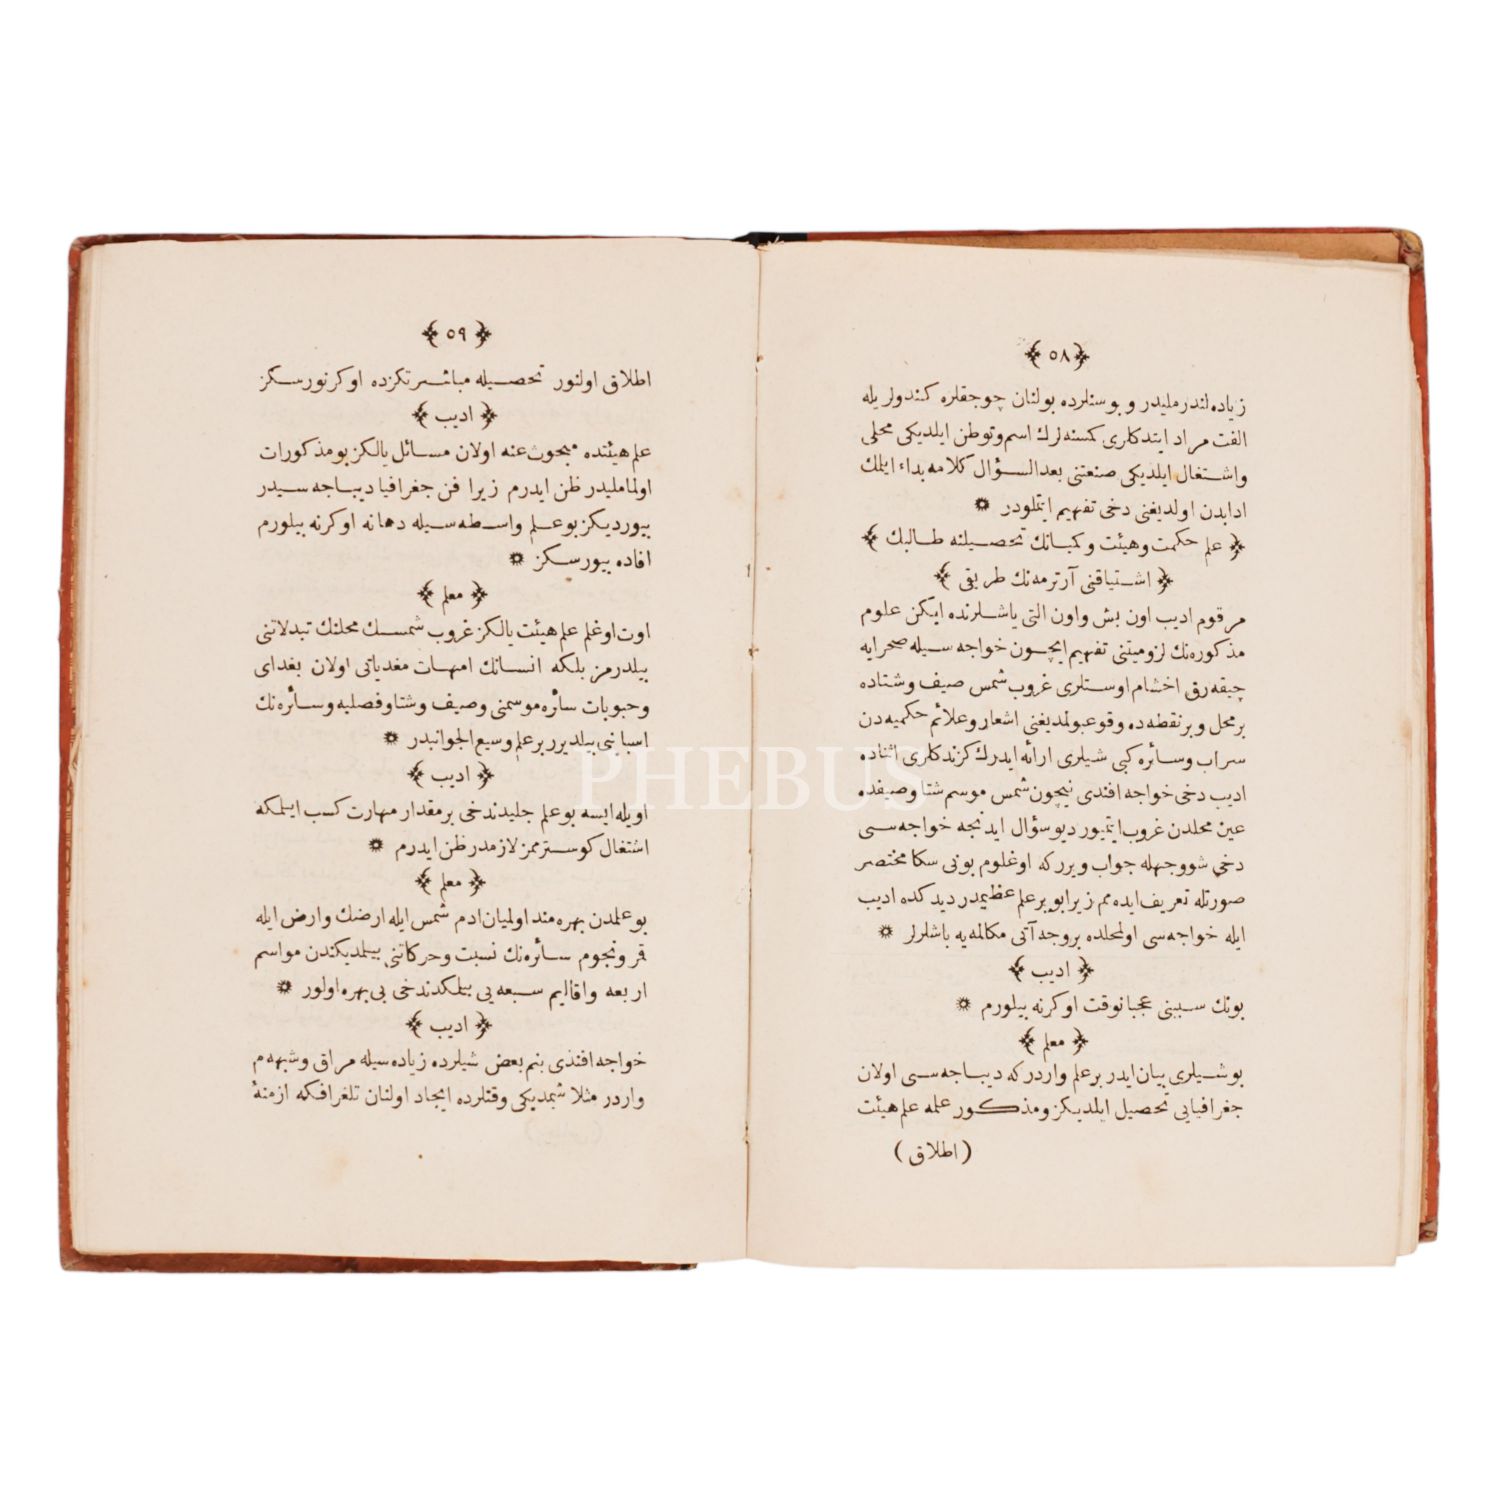 ﴿ ٥٨ ﴾
زیاده‌لندرملیدر و بوسنلرده بولنان چوجقلره کندولریله
الفت مراد ایتدکلری کمسنه‌لرك اسم و توطن ایلدیکی محلی
واشتغال ایلدیکی صنعتنی بعدالسؤال کلامه بداء ایلمك
ادابدن اولدیغنی دخی تفهیم ایتملودر ۞
﴿ علم حکمت و هیئت و کمیانك تحصیلنه طالبك ﴾
﴿ اشتیاقنی آرترمه‌نك طریقی ﴾
مرقوم ادیب اون بش واون التی یاشلرنده ایکن علوم
مذکوره‌نك لزومیتنی تفهیم ایچون خواجه سیله صحرایه
چیقه‌رق اخشام اوستلری غروب شمس صیف وشتاده
برمحل و برنقطه‌ده وقوعبولمدیغنی اشعار وعلائم حکمیه‌دن
سراب وسائره کبی شیلری ارائه ایدرك کزندکلری اثناده
ادیب دخی خواجه افندی نیچون شمس موسم شتا وصیفده
عین محلدن غروب ایتمیور دیو سؤال ایدنجه خواجه سی
دخی شووجهله جواب ویررکه اوغلوم بونی سکا مختصر
صورتله تعریف ایده‌مم زیرا بو بر علم عظیمدر دیدکده ادیب
ایله خواجه‌سی اولمحلده بروجه آتی مکالمه‌یه باشلرلر ۞
﴿ ادیب ﴾
بونك سببنی عجبا نوقت اوکرنه بیلورم ۞
﴿ معلم ﴾
بوشیلری بیان ایدر برعلم واردرکه دیباجه سی اولان
جغرافیایی تحصیل ایلدیکز ومذکور علمه علم هیئت
(اطلاق)
﴿ ٥٩ ﴾
اطلاق اولنور تحصیله مباشرتکزده اوکرنورسکز
﴿ ادیب ﴾
علم هیئتده مبحوث عنه اولان مسائل یالکز بومذکورات
اولماملیدر ظن ایدرم زیرا فن جغرافیا دیباجه سیدر
بیوردیکز بوعلم واسطه سیله دها نه اوکرنه بیلورم
افاده بیورسکز ۞
﴿ معلم ﴾
اوت اوغلم علم هیئت یالکز غروب شمسك محلنك تبدلاتنی
بیلدرمز بلکه انسانك امهات مغدیاتی اولان بغدای
وحبوبات سائره موسمنی وصیف وشتا وفصلیه وسائره‌نك
اسبابنی بیلدیرر برعلم وسیع الجوانبدر ۞
﴿ ادیب ﴾
اویله ایسه بوعلم جلیدندخی برمقدار مهارت کسب ایلمکه
اشتغال کوسترممز لازمدر ظن ایدرم ۞
﴿ معلم ﴾
بوعلمدن بهره‌مند اولمیان ادم شمس ایله ارضك وارض ایله
قمر ونجوم سائره‌نك نسبت وحرکاتنی بیلمدیکندن مواسم
اربعه واقالیم سبعه‌یی بیلمکدندخی بی بهره اولور ۞
﴿ ادیب ﴾
خواجه افندی بنم بعض شیلرده زیاده‌سیله مراق وشبهه‌م
واردر مثلا شمدیکی وقتلرده ایجاد اولنان تلغرافکه ازمنهٔ
PHEBUS